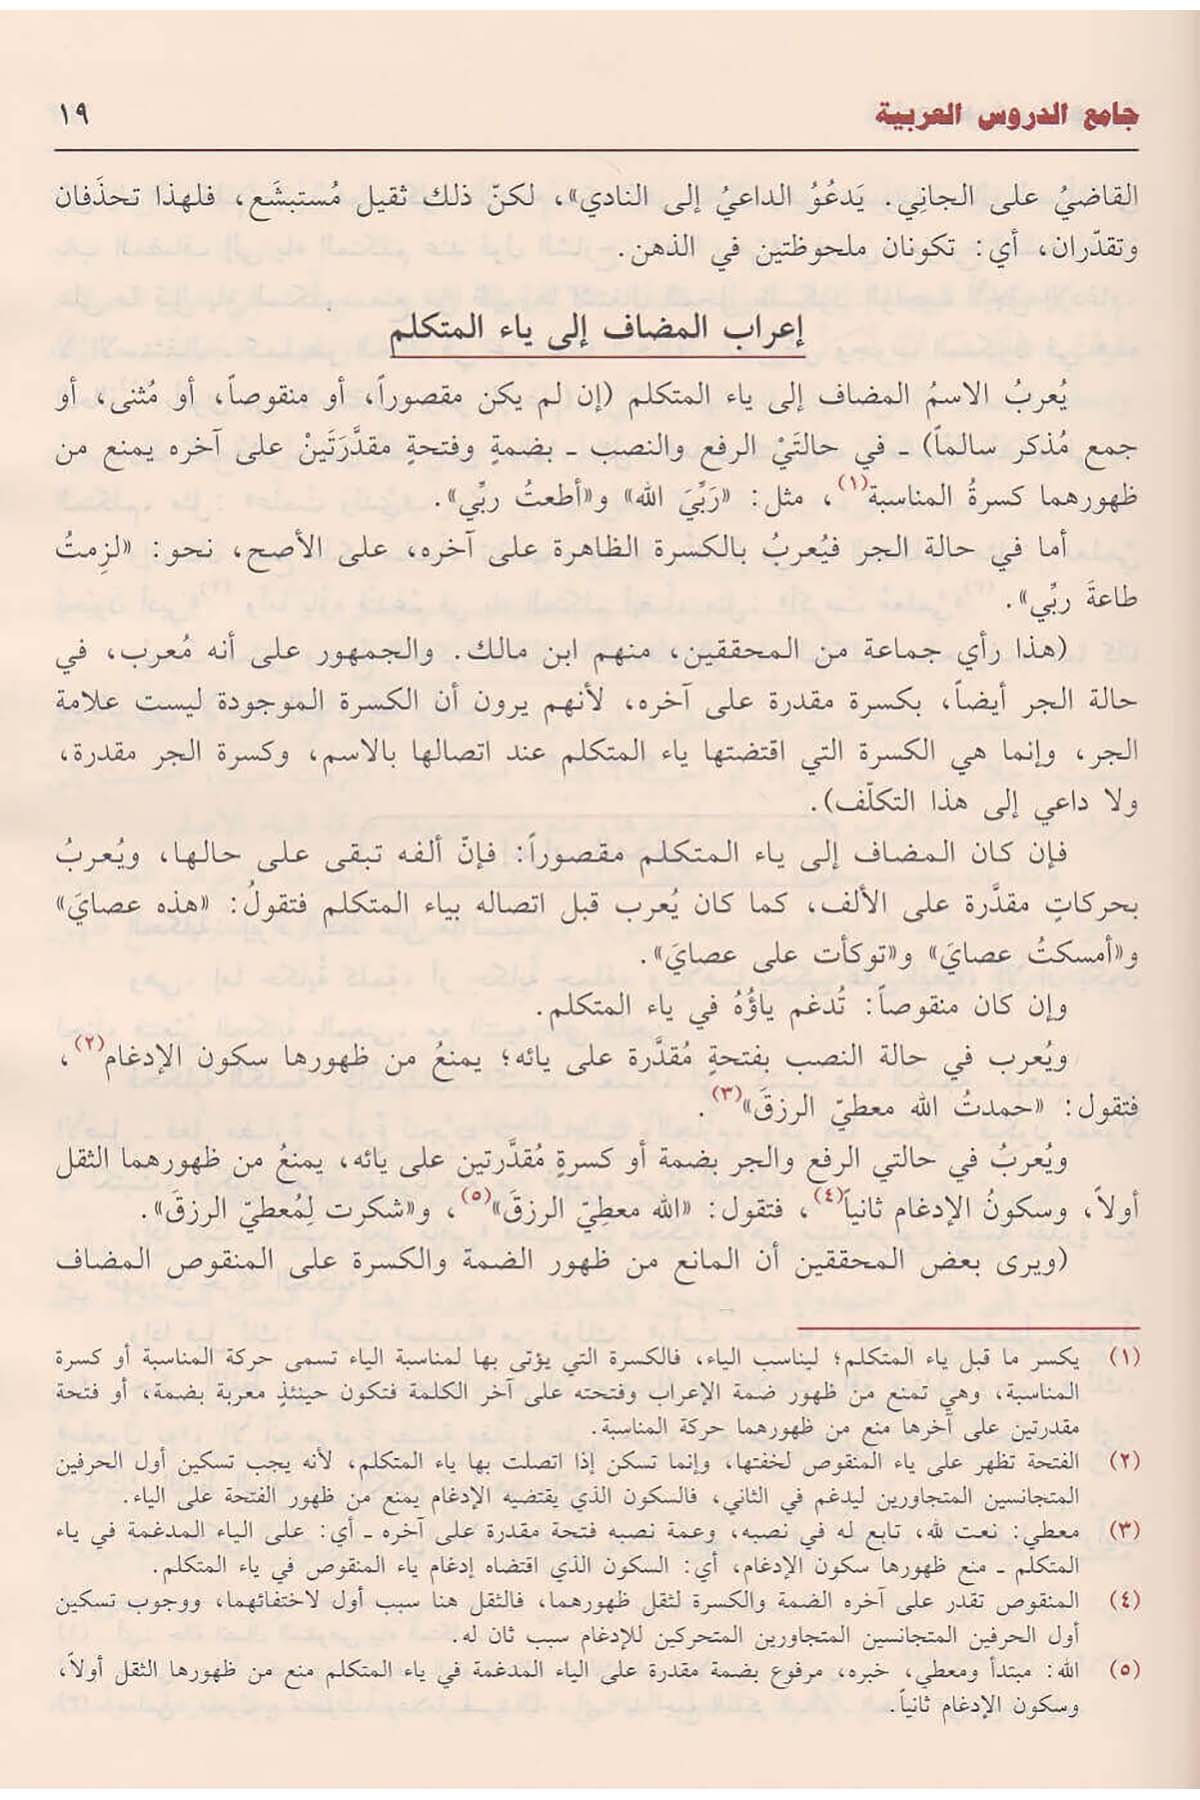 جامع الدروس العربية ١٩
القاضيُ على الجانِي. يَدعُوُ الداعيُ إلى النادي»، لكنّ ذلك ثقيل مُستبشَع، فلهذا تحذَفان
وتقدّران، أي: تكونان ملحوظتين في الذهن.
إعراب المضاف إلى ياء المتكلم
يُعربُ الاسمُ المضاف إلى ياء المتكلم (إن لم يكن مقصوراً، أو منقوصاً، أو مُثنى، أو
جمع مُذكر سالماً) ـ في حالتَيْ الرفع والنصب ـ بضمةٍ وفتحةٍ مقدَّرَتَينْ على آخره يمنع من
ظهورهما كسرةُ المناسبة(١)، مثل: «رَبِّيَ الله» و«أطعتُ ربِّي».
أما في حالة الجر فيُعربُ بالكسرة الظاهرة على آخره، على الأصح، نحو: «لزِمتُ
طاعةَ ربِّي».
(هذا رأي جماعة من المحققين، منهم ابن مالك. والجمهور على أنه مُعرب، في
حالة الجر أيضاً، بكسرة مقدرة على آخره، لأنهم يرون أن الكسرة الموجودة ليست علامة
الجر، وإنما هي الكسرة التي اقتضتها ياء المتكلم عند اتصالها بالاسم، وكسرة الجر مقدرة،
ولا داعي إلى هذا التكلّف).
فإن كان المضاف إلى ياء المتكلم مقصوراً: فإنّ ألفه تبقى على حالها، ويُعربُ
بحركاتٍ مقدَّرة على الألف، كما كان يُعرب قبل اتصاله بياء المتكلم فتقولُ: «هذه عصايَ»
و«أمسكتُ عصايَ» و«توكأت على عصايَ».
وإن كان منقوصاً: تُدغم ياؤُهُ في ياء المتكلم.
ويُعرب في حالة النصب بفتحةٍ مُقدَّرة على يائه؛ يمنعُ من ظهورها سكون الإدغام(٢)،
فتقول: «حمدتُ الله معطيّ الرزقَ»(٣).
ويُعربُ في حالتي الرفع والجر بضمة أو كسرةٍ مُقدَّرتين على يائه، يمنعُ من ظهورهما الثقل
أولاً، وسكونُ الإدغام ثانياً(٤)، فتقول: «الله معطِيّ الرزقَ»(٥)، و«شكرت لِمُعطيّ الرزقَ».
(ويرى بعض المحققين أن المانع من ظهور الضمة والكسرة على المنقوص المضاف
(١) يكسر ما قبل ياء المتكلم؛ ليناسب الياء، فالكسرة التي يؤتى بها لمناسبة الياء تسمى حركة المناسبة أو كسرة
المناسبة، وهي تمنع من ظهور ضمة الإعراب وفتحته على آخر الكلمة فتكون حينئذٍ معربة بضمة، أو فتحة
مقدرتين على آخرها منع من ظهورهما حركة المناسبة.
(٢) الفتحة تظهر على ياء المنقوص لخفتها، وإنما تسكن إذا اتصلت بها ياء المتكلم، لأنه يجب تسكين أول الحرفين
المتجانسين المتجاورين ليدغم في الثاني، فالسكون الذي يقتضيه الإدغام يمنع من ظهور الفتحة على الياء.
(٣) معطي: نعت لله، تابع له في نصبه، وعمة نصبه فتحة مقدرة على آخره ـ أي: على الياء المدغمة في ياء
المتكلم ـ منع ظهورها سكون الإدغام، أي: السكون الذي اقتضاه إدغام ياء المنقوص في ياء المتكلم.
(٤) المنقوص تقدر على آخره الضمة والكسرة لثقل ظهورهما، فالثقل هنا سبب أول لاختفائهما، ووجوب تسكين
أول الحرفين المتجانسين المتجاورين المتحركين للإدغام سبب ثان له.
(٥) الله: مبتدأ ومعطي، خبره، مرفوع بضمة مقدرة على الياء المدغمة في ياء المتكلم منع من ظهورها الثقل أولاً،
وسكون الإدغام ثانياً.